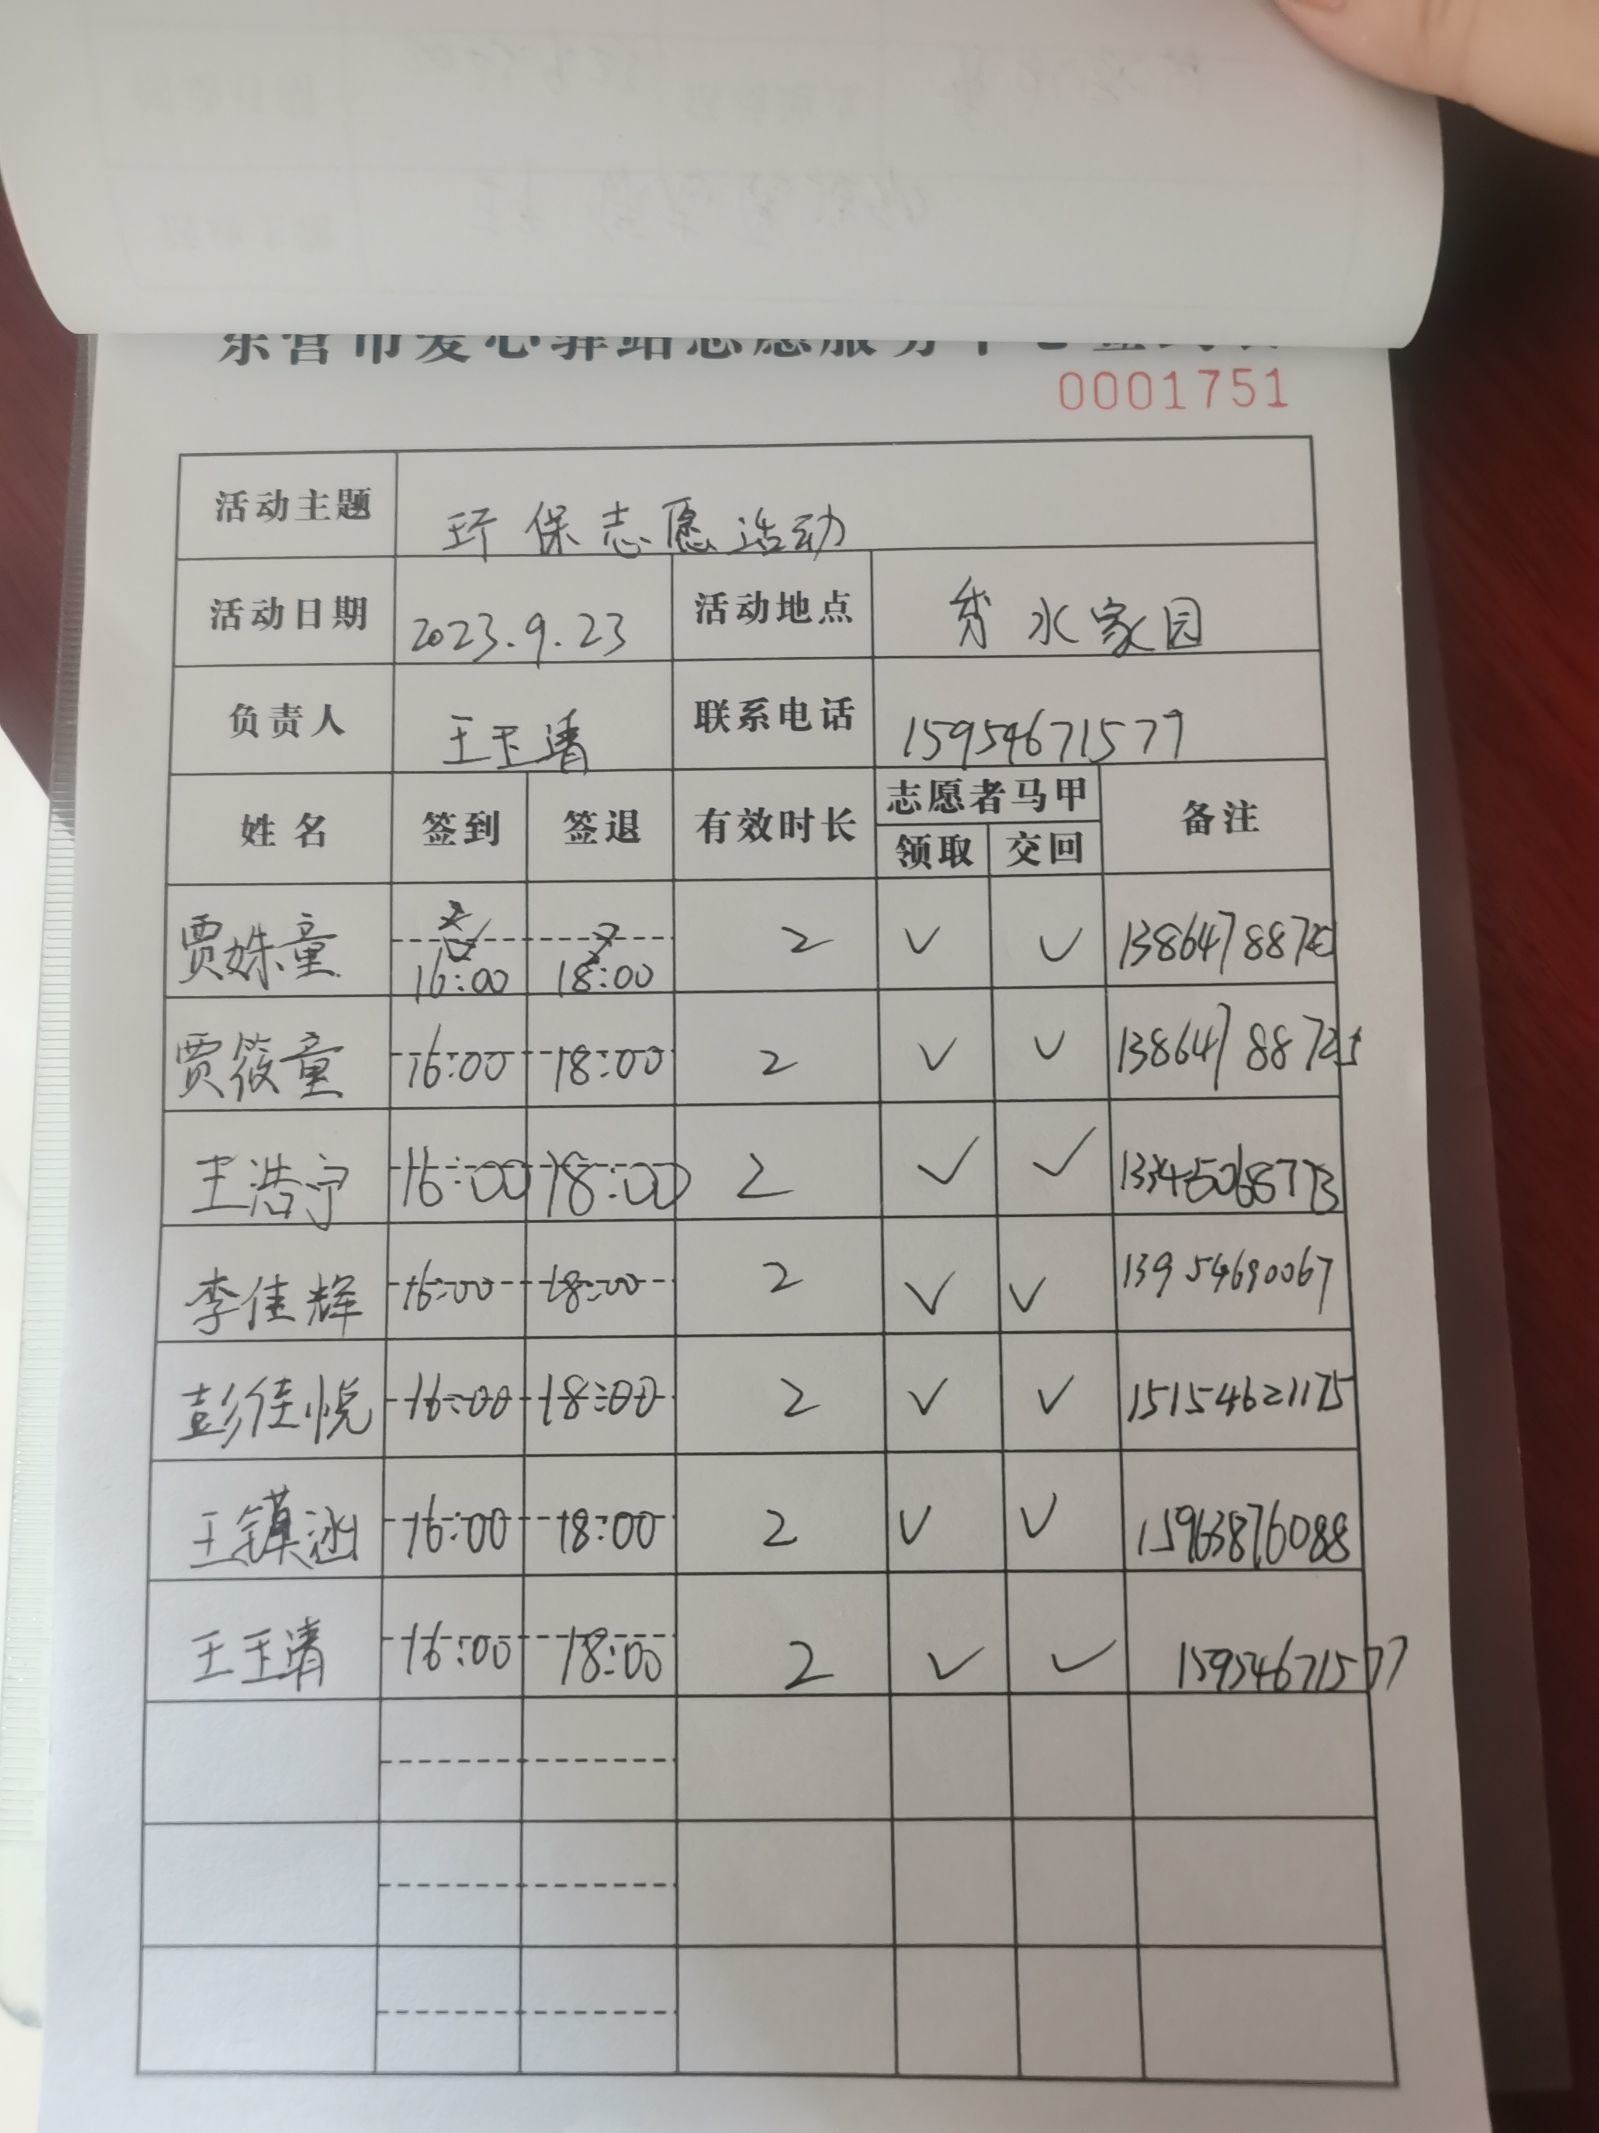 东营市爱心驿站志愿服务中心签到表
0001751
活动主题 环保志愿活动
活动日期 2023.9.23 活动地点 秀水家园
负责人 王玉清 联系电话 15954671577
姓名 签到 签退 有效时长 志愿者马甲 领取 交回 备注
贾姝童 16:00 18:00 2 ✓ ✓
贾筱童 16:00 18:00 2 ✓ ✓
王浩宁 16:00 18:00 2 ✓ ✓
李佳辉 16:00 18:00 2 ✓ ✓ 13954690067
彭佳悦 16:00 18:00 2 ✓ ✓ 15154621175
王镆涵 16:00 18:00 2 ✓ ✓ 15963876088
王玉清 16:00 18:00 2 ✓ ✓ 15954671577